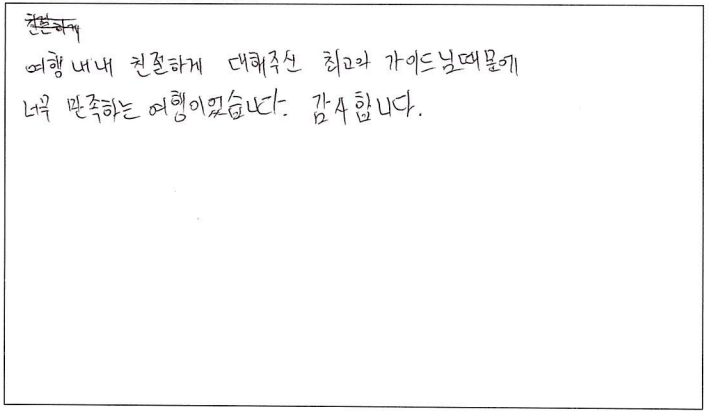 친절하게
여행 내내 친절하게 대해주신 최고의 가이드님때문에
너무 만족하는 여행이었습니다. 감사합니다.